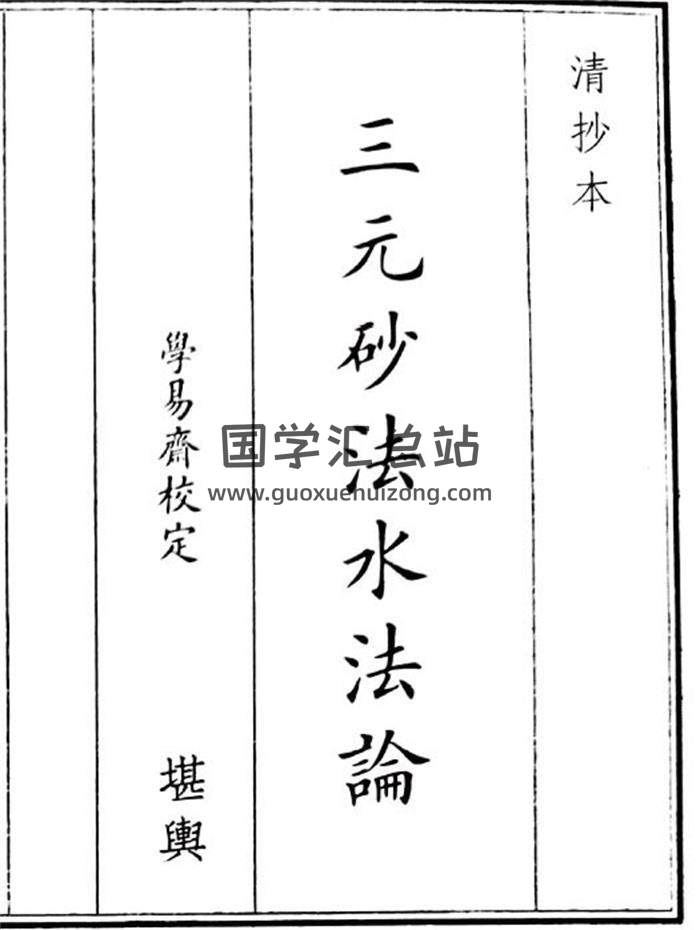 清抄本
三元砂法水法論
學易齋校定
堪輿
国学汇总站
www.guoxuehuizong.com